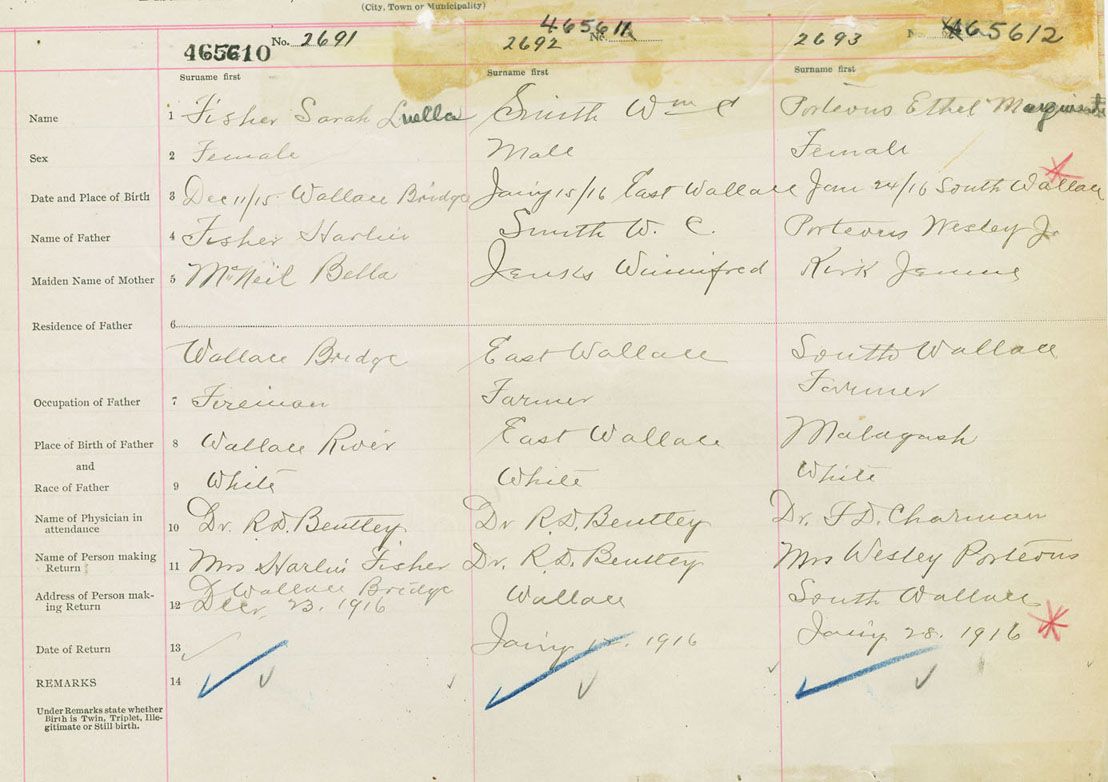 (City, Town or Municipality)
465610 No. 2691 2692 465611 No. 2693 No. 465612
Surname first Surname first Surname first
Name 1 Fisher Sarah Luella Smith Wm C Porteous Ethel Marguerite
Sex 2 Female Male Female
Date and Place of Birth 3 Dec 11/15 Wallace Bridge Jany 15/16 East Wallace Jan 24/16 South Wallace
Name of Father 4 Fisher Harlin Smith W. C. Porteous Wesley J.
Maiden Name of Mother 5 McNeil Bella Jenks Winnifred Kirk Jennie
Residence of Father 6
Wallace Bridge East Wallace South Wallace
Occupation of Father 7 Fireman Farmer Farmer
Place of Birth of Father 8 Wallace River East Wallace Malagash
and
Race of Father 9 White White White
Name of Physician in
attendance 10 Dr. R.D. Bentley Dr R.D. Bentley Dr. F.D. Charman
Name of Person making
Return 11 Mrs Harlin Fisher Dr. R.D. Bentley Mrs Wesley Porteous
Address of Person mak-
ing Return 12 Wallace Bridge Wallace South Wallace
23, 1916
Date of Return 13 Jany 1916 Jany 28. 1916
REMARKS 14
Under Remarks state whether
Birth is Twin, Triplet, Ille-
gitimate or Still birth.